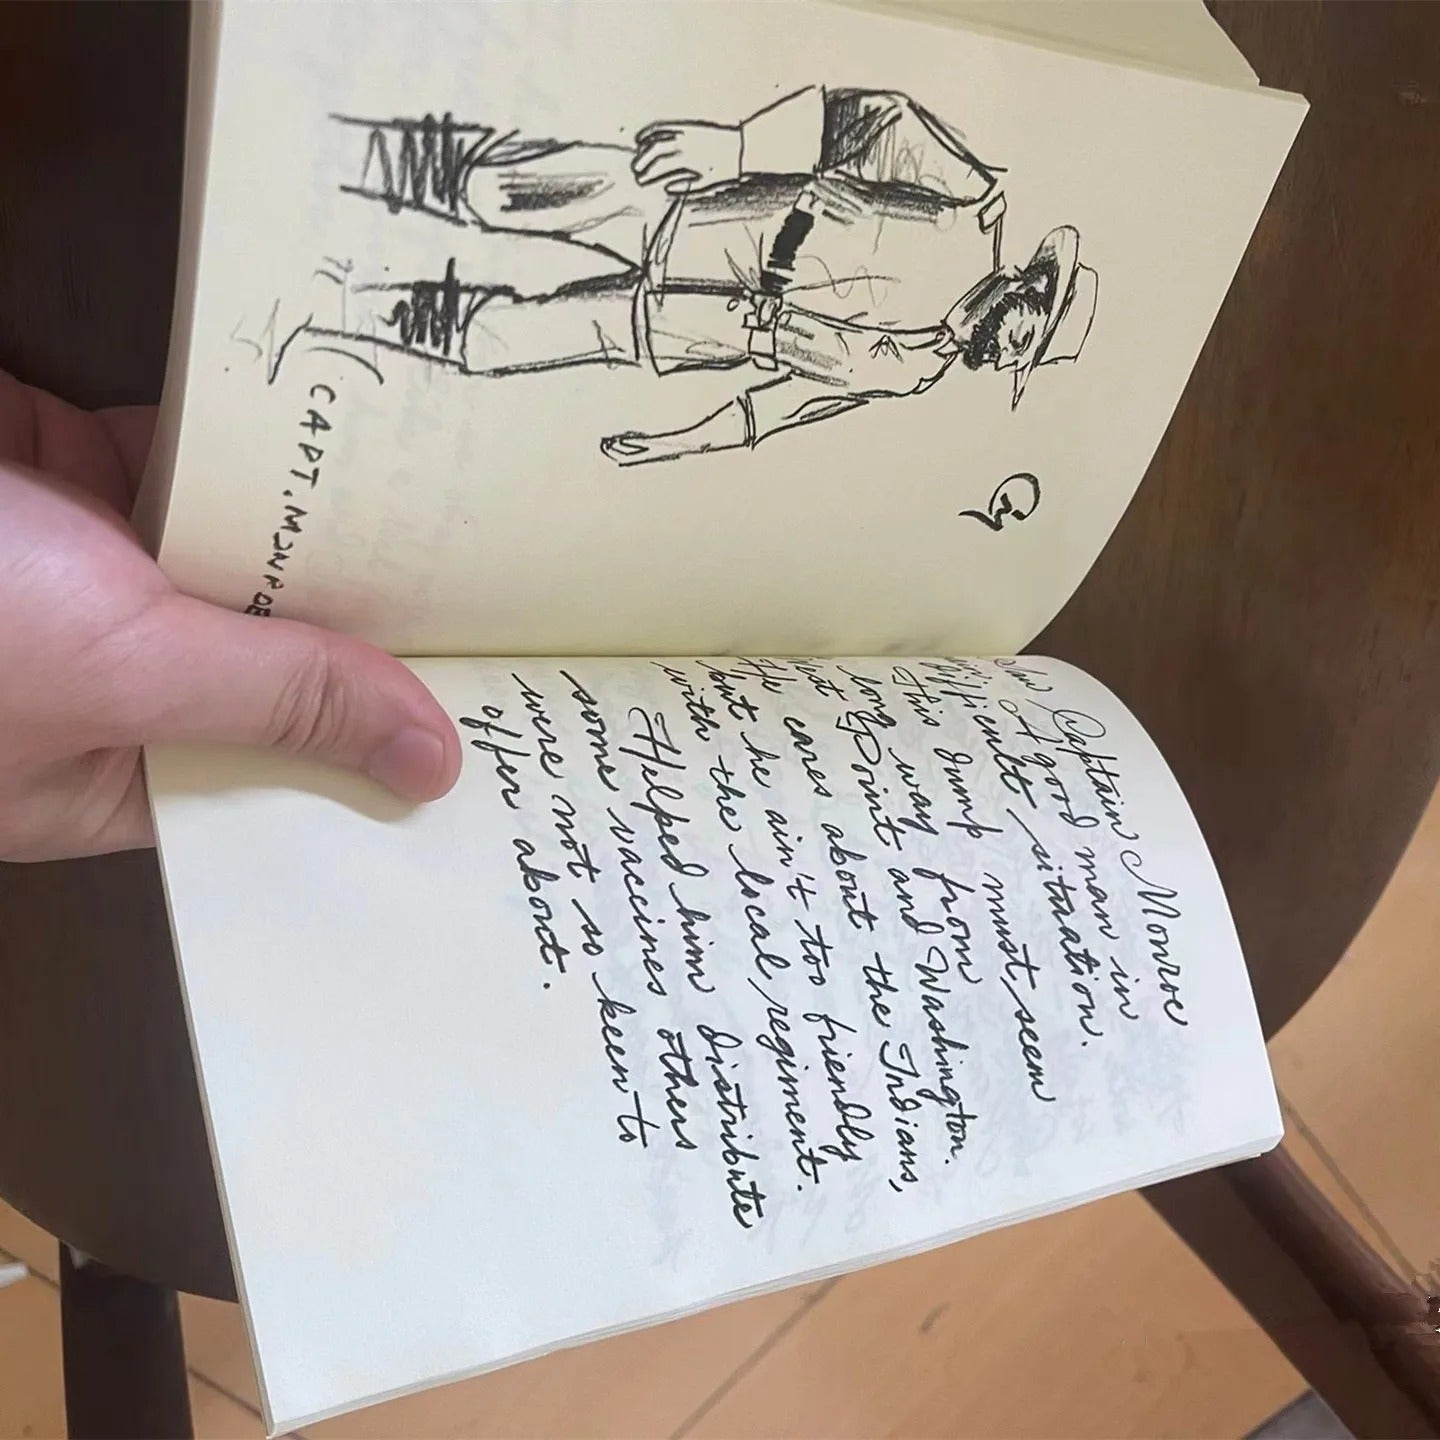 CAPT. MONROE
Captain Monroe
A good man in
difficult situation.
This must seem
long way from
West Point and Washington.
He cares about the Indians,
but he ain't too friendly
with the local regiment.
Helped him distribute
some vaccines others
were not so keen to
offer about.